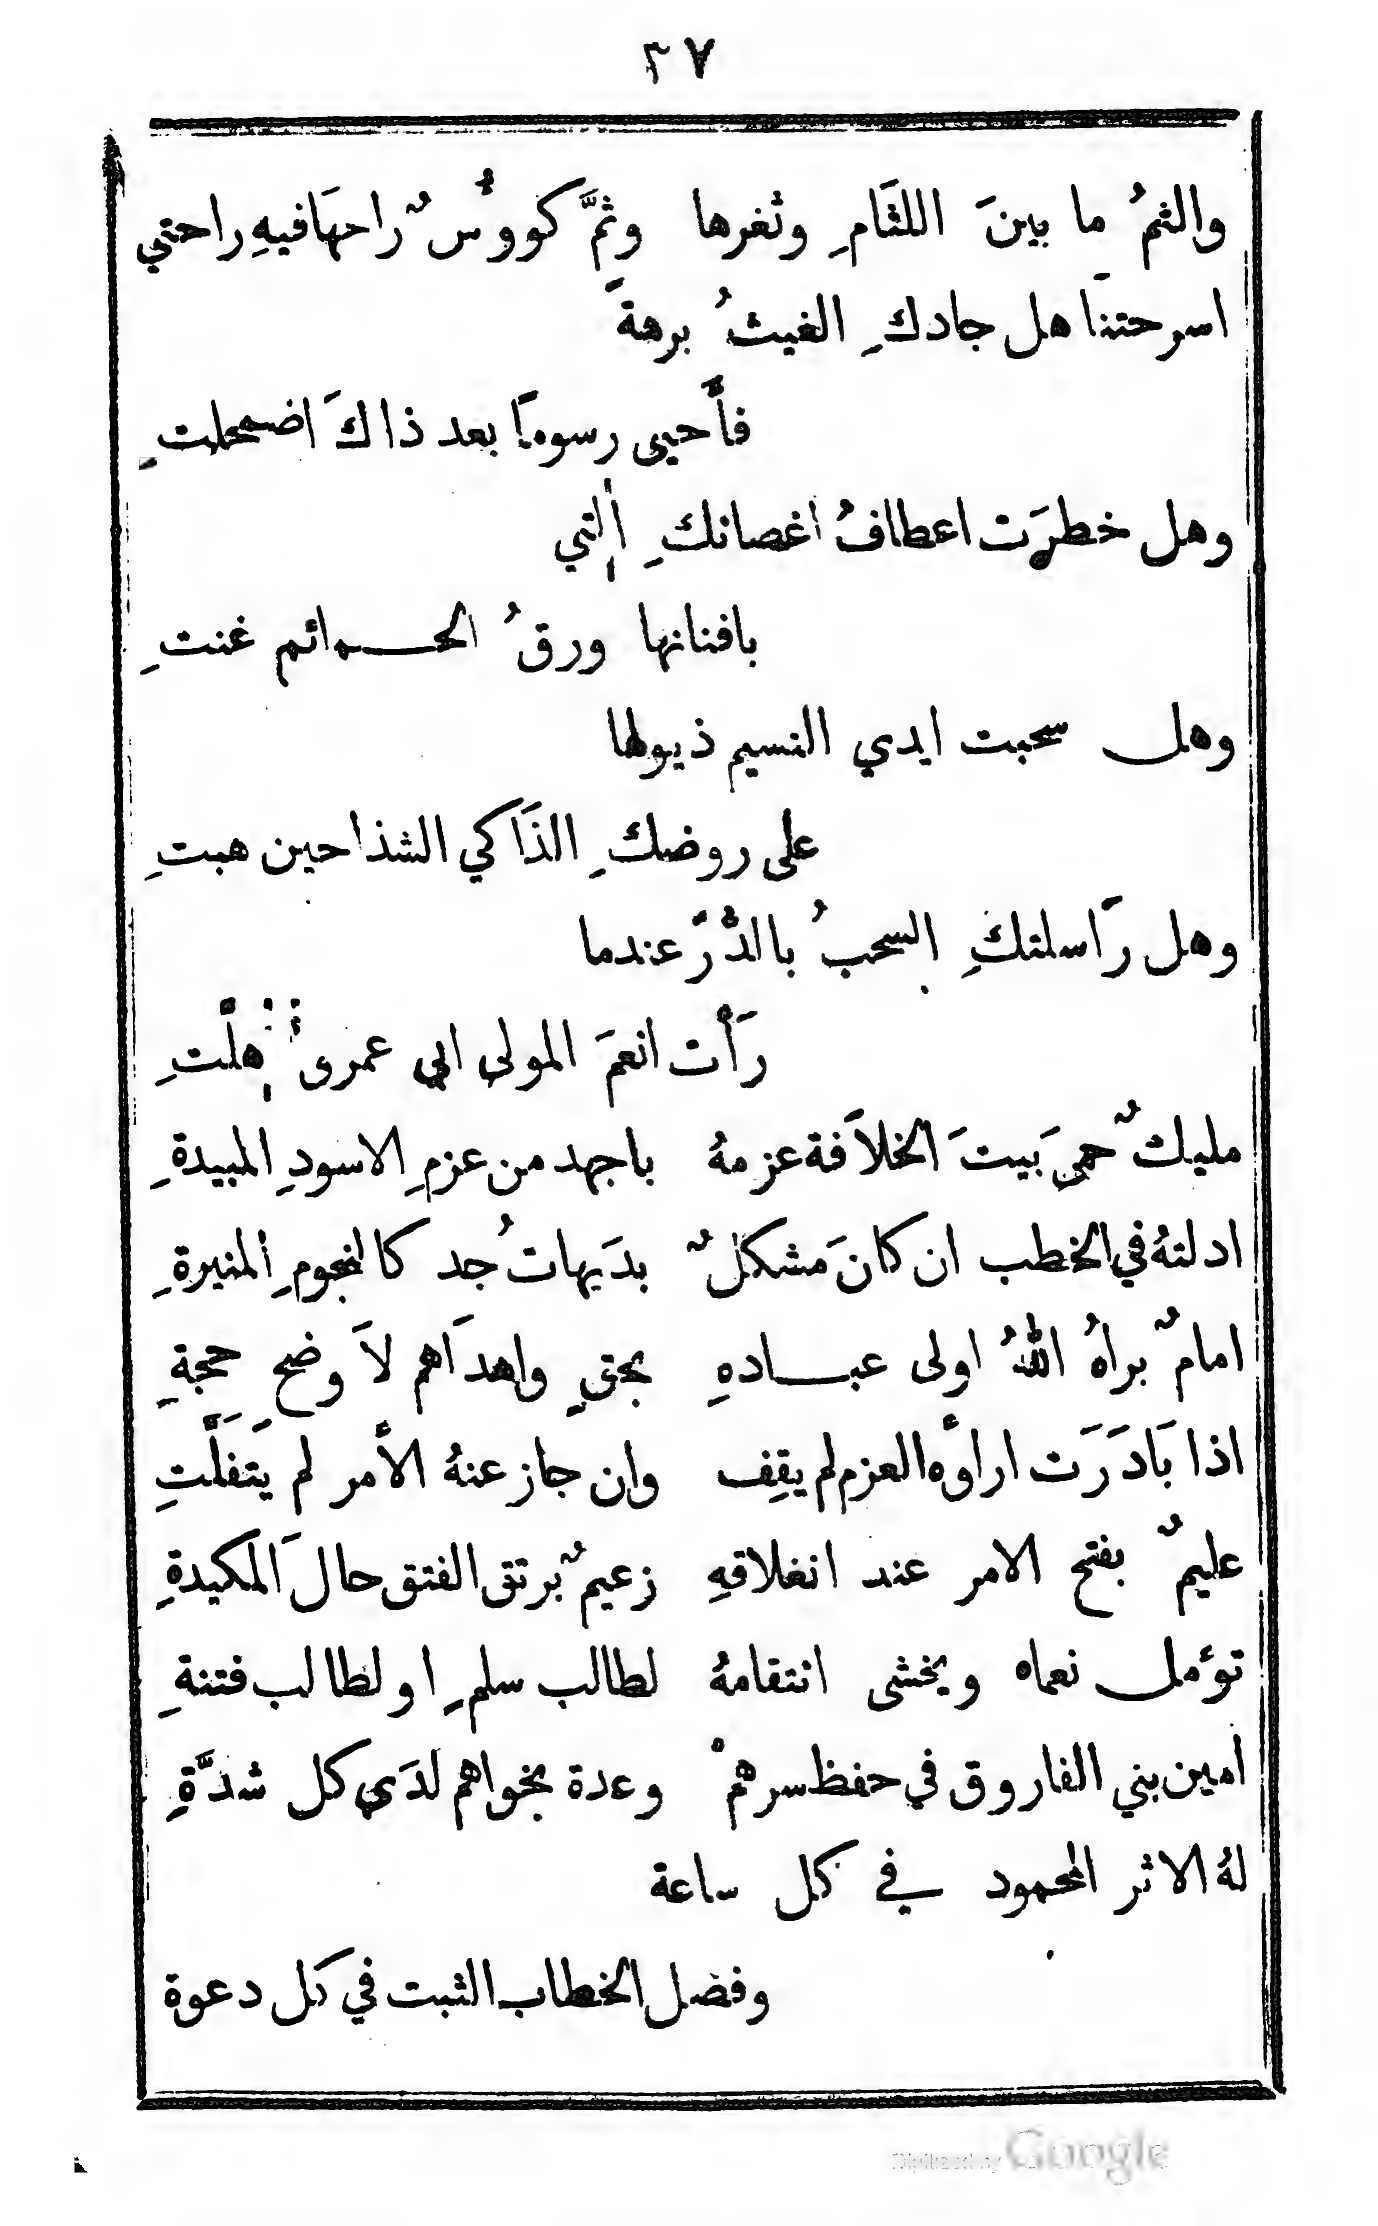 ٣٧
والثمُ ما بينَ اللثَامِ وثغرها وثمَّ كووُسٌ راحهَا فيهِ راحتي
اسرحتنَا هل جادكِ الغيثُ برهةً
فأَحيى رسومًا بعد ذاكَ اضمحلتِ
وهل خطرَت اعطافُ اغصانكِ التي
بافنانها ورقُ الحمائم غنتِ
وهل سحبت ايدي النسيم ذيولها
على روضكِ الذَاكي الشذا حين هبتِ
وهل رَاسلتكِ السحبُ بالدُرّ عندما
رَأَت انعمَ المولى ابي عمرى هلَّتِ
مليكٌ حمىَ بيتَ الخلاَفة عزمهُ باجهد من عزمِ الاسودِ المبيدةِ
ادلتهُ في الخطب ان كانَ مشكلٌ بدَيهاتُ جد كالنجومِ المنيرةِ
امامٌ براهُ اللهُ اولى عبادهِ بحقٍ واهدَاهم لاَوضحِ حجةِ
اذا بَادَرَت اراوُه العزم لم يقِف وان جاز عنهُ الأمر لم يتَفلَّتِ
عليمٌ بفتح الامر عند انغلاقهِ زعيمٌ برتق الفتق حالَ المكيدةِ
توءمل نعماه ويخشى انتقامهُ لطالب سلمٍ او لطالب فتنةِ
امين بني الفاروق في حفظ سرهمْ وعدة نجواهم لدَى كل شدَّةِ
لهُ الاثر المحمود في كل ساعة
وفضل الخطاب الثبت في كل دعوة
Digitized by Google